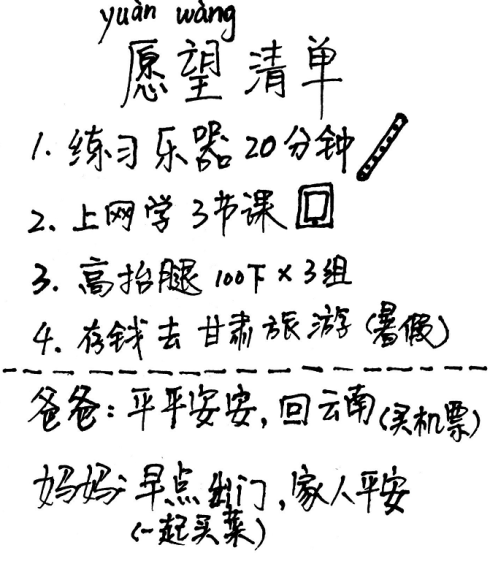 yuàn wàng
愿望清单
1. 练习乐器20分钟
2. 上网学3节课
3. 高抬腿100下×3组
4. 存钱去甘肃旅游(暑假)
爸爸:平平安安,回云南(买机票)
妈妈:早点出门,家人平安
(一起买菜)